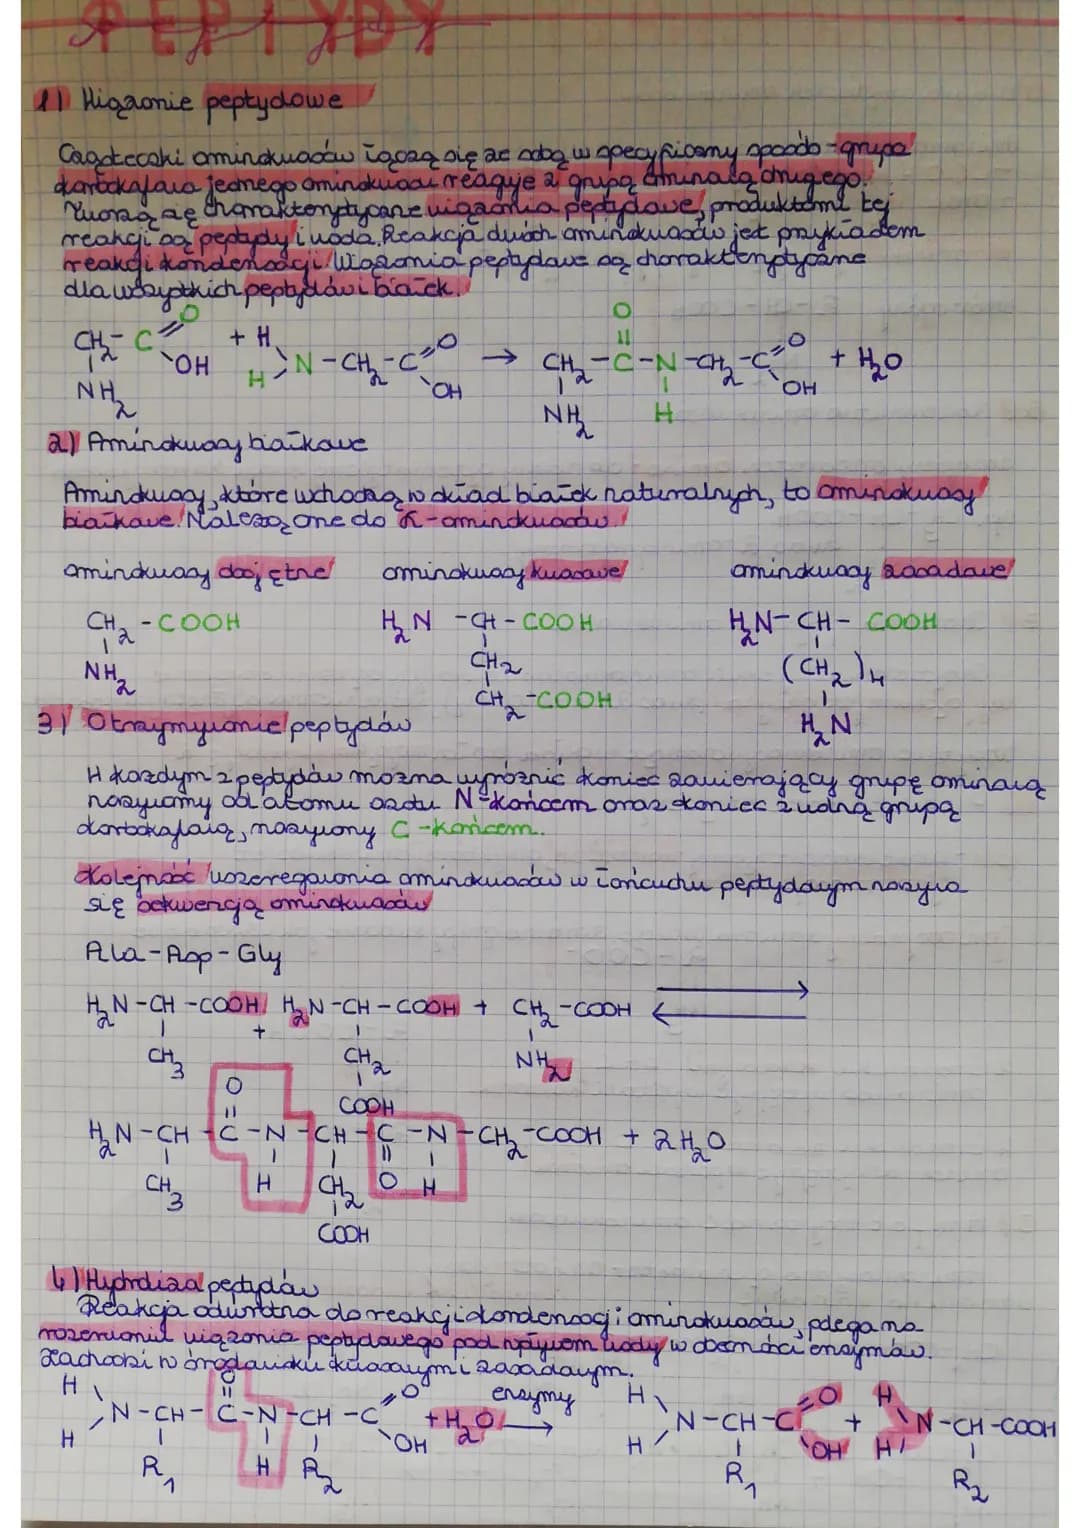 PEPTYDY
1) Wiązanie peptydowe
Cząsteczki aminokwasów łączą się ze sobą w specyficzny sposób - grupa
karboksylowa jednego aminokwasu reaguje z grupą aminową drugiego.
Tworzą się charakterystyczne wiązania peptydowe, produktami tej
reakcji są peptydy i woda. Reakcja dwóch aminokwasów jest przykładem
reakcji kondensacji. Wiązania peptydowe są charakterystyczne
dla wszystkich peptydów i białek.
O O
CH2 - C + H N - CH2 - C O → CH2 - C - N - CH2 - C O + H2O
OH H OH OH
NH2 NH2 H
2) Aminokwasy białkowe
Aminokwasy, które wchodzą w skład białek naturalnych, to aminokwasy
białkowe. Należą one do α-aminokwasów.
aminokwasy obojętne aminokwasy kwasowe aminokwasy zasadowe
CH2 - COOH H2N - CH - COOH H2N - CH - COOH
NH2 CH2 (CH2)4
CH2 - COOH H2N
3) Otrzymywanie peptydów
W każdym z peptydów można wyróżnić koniec zawierający grupę aminową
nazywamy od atomu azotu N-końcem oraz koniec z wolną grupą
karboksylową, nazywany C-końcem.
Kolejność uszeregowania aminokwasów w łańcuchu peptydowym nazywa
się sekwencją aminokwasów
Ala - Asp - Gly
H2N - CH - COOH + H2N - CH - COOH + CH2 - COOH ⇄
CH3 CH2 NH2
COOH
O
H2N - CH - C - N - CH - C - N - CH2 - COOH + 2H2O
CH3 H CH2 O H
COOH
4) Hydroliza peptydów
Reakcja odwrotna do reakcji kondensacji aminokwasów, polega na
rozerwaniu wiązania peptydowego pod wpływem wody w obecności enzymów.
Zachodzi w środowisku kwasowym i zasadowym.
H O O enzymy H O H
N - CH - C - N - CH - C + H2O → N - CH - C + N - CH - COOH
H R1 H R2 OH H R1 OH H R2